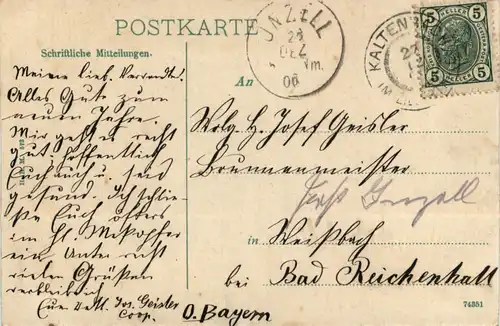 POSTKARTE
Schriftliche Mitteilungen.
Meine lieb. Verwandte!
Alles Gute zum
neuen Jahre.
Mir geht es recht
gut; hoffentlich
Euch auch u. seid
gesund. Ich schlie-
ße Euch öfters
im hl. Meßopfer
ein. Unter recht
vielen Grüßen
verbleibe ich
Euer Jos. Geisler
Coop.
UNZELL
28
DEZ
06
KALTEN
27
IM ZILL
5 HELLER 5
5 HELLER 5
An
Wolg. H. Josef Geisler
Brunnenmeister
Post Inzell
in Weißbach
bei Bad Reichenhall
O. Bayern
74351